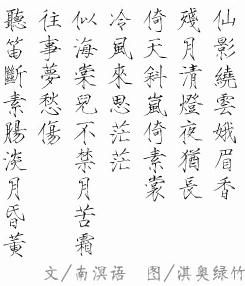 仙影繞雲娥眉香
殘月清燈夜猶長
倚天斜嵐倚素裳
冷風來思茫茫
似海棠兒不禁月苦霜
往事夢愁傷
聽笛斷素腸淡月昏黃
文/南溟语 图/淇奥绿竹